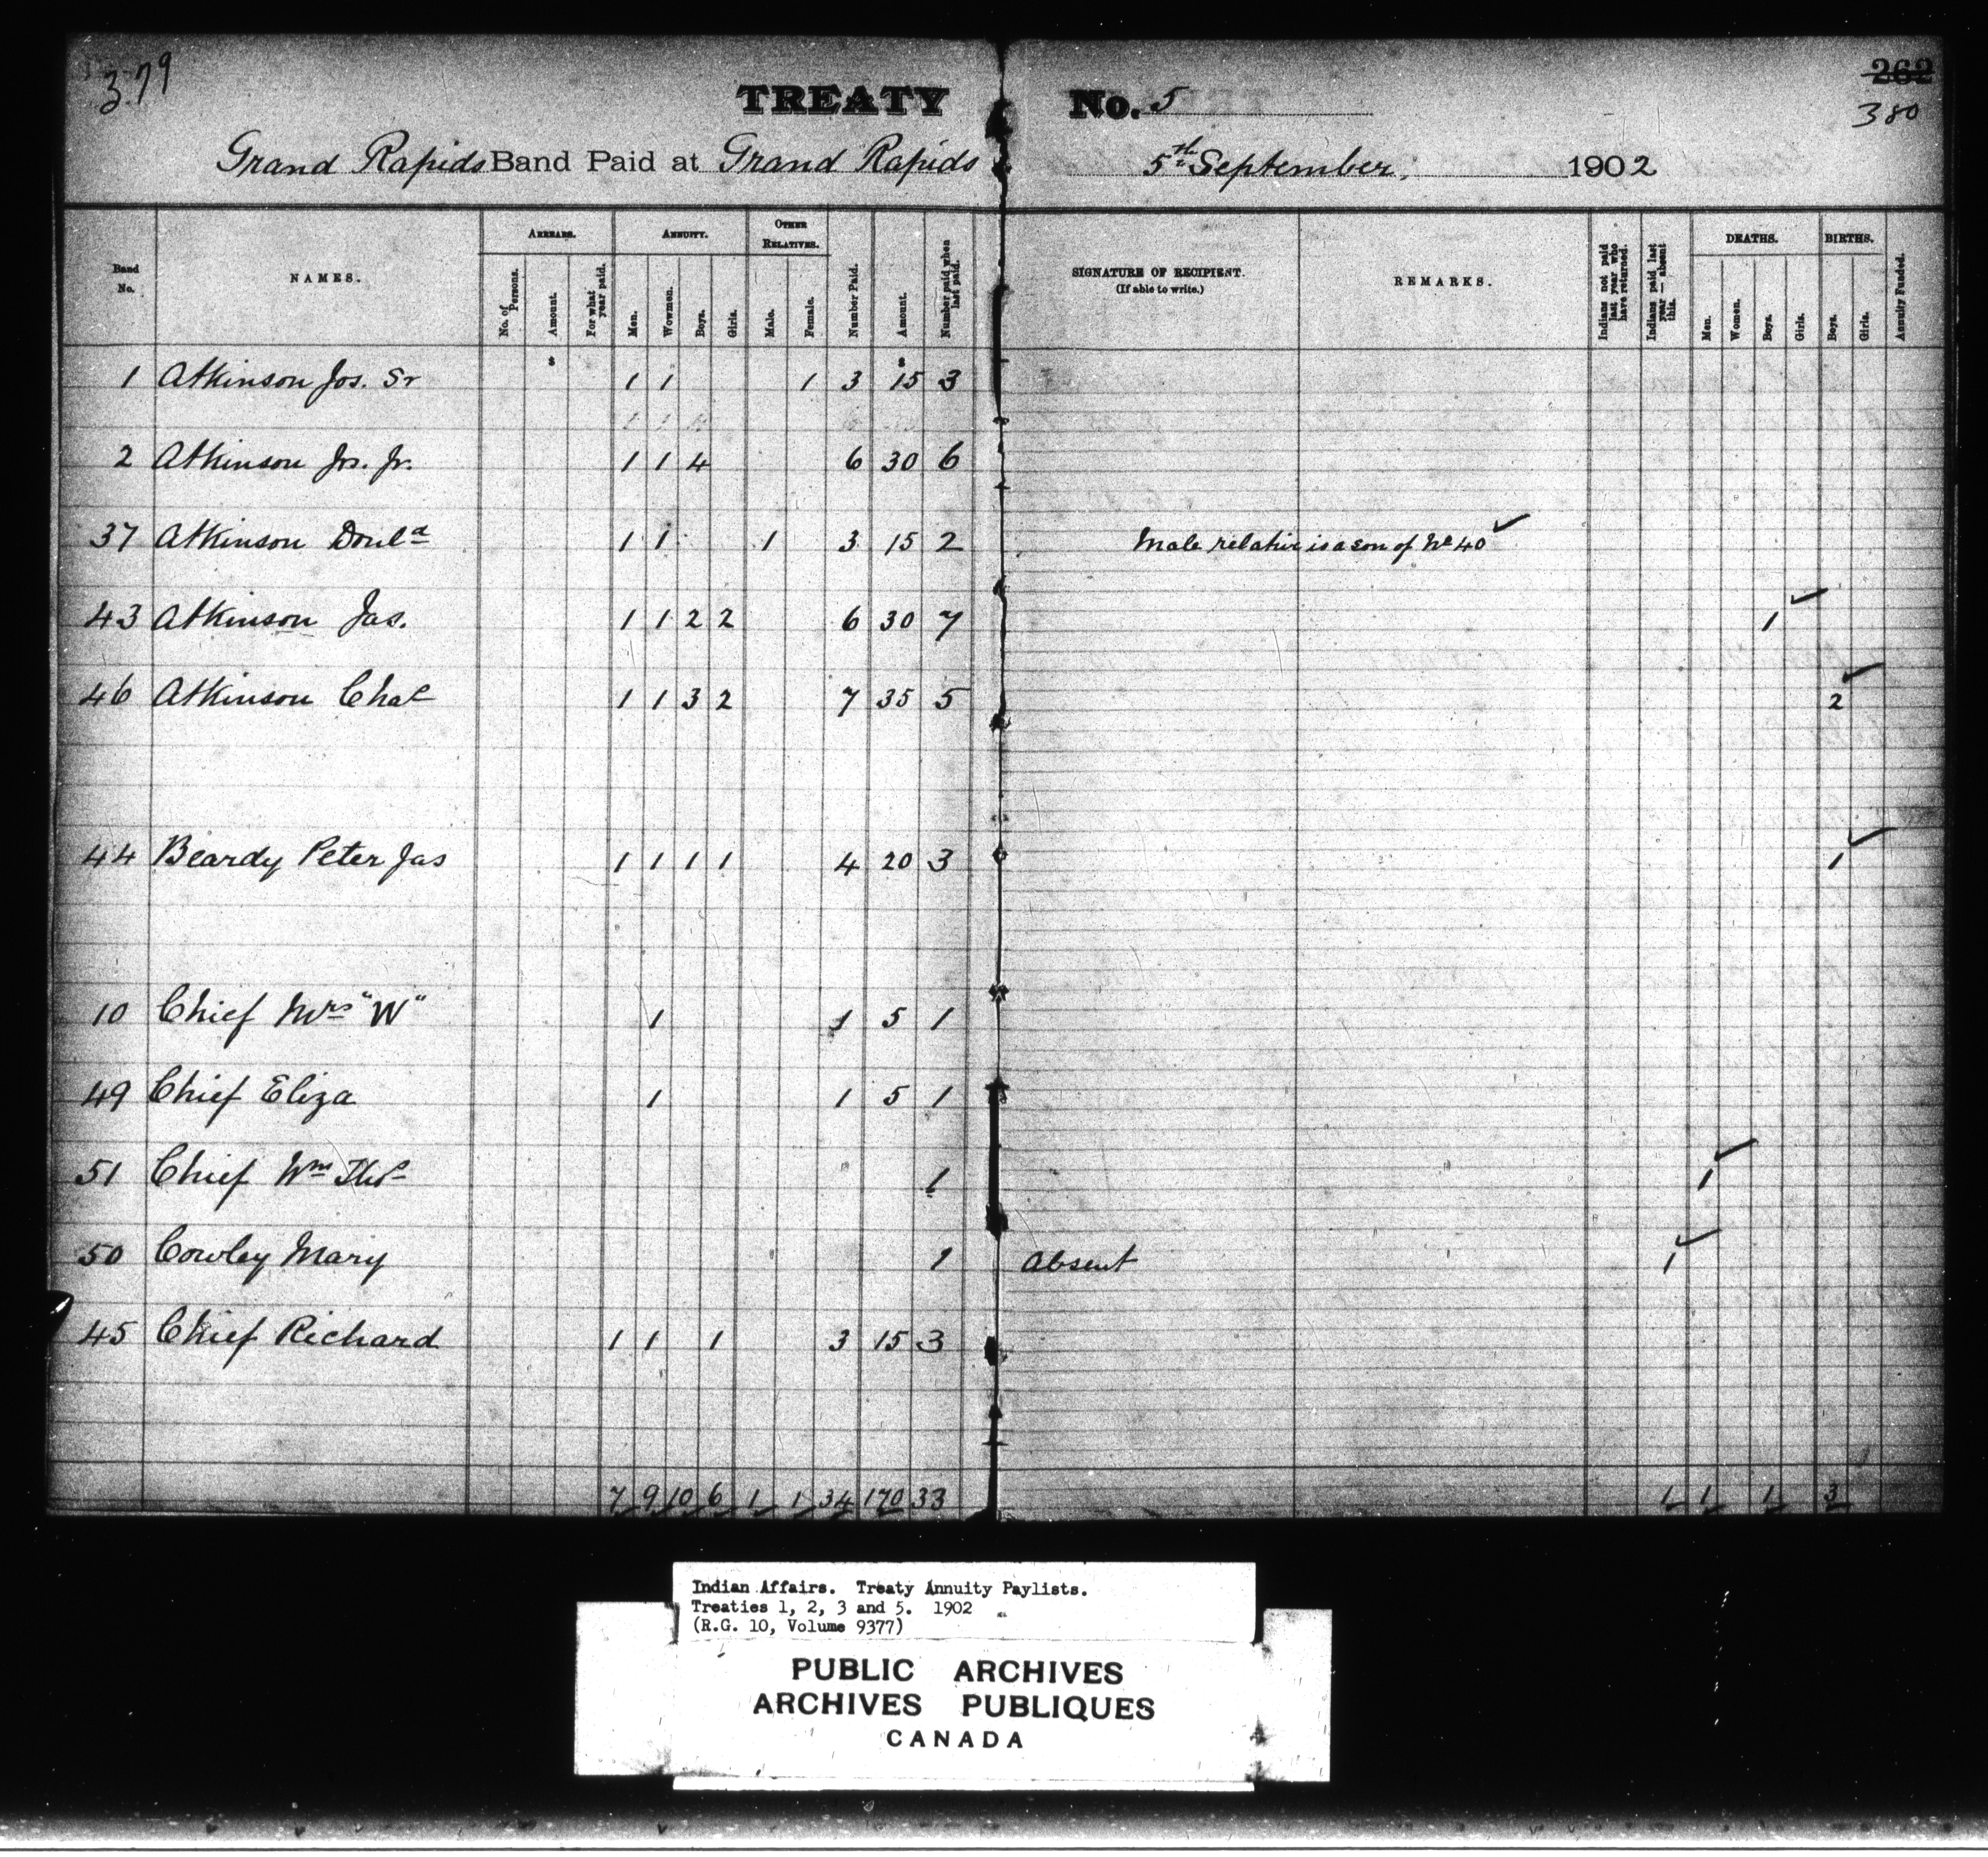 379
262
380
TREATY No. 5
Grand Rapids Band Paid at Grand Rapids 5th September, 1902
Band No. NAMES. ARREARS. ANNUITY. OTHER RELATIVES. Number Paid. Amount. Number paid when last paid. SIGNATURE OF RECIPIENT. (If able to write.) REMARKS. Indians not paid last year who have returned. Indians paid last year — absent this. DEATHS. BIRTHS. Annuity Funded.
No. of Persons. Amount. For what year paid. Men. Wowmen. Boys. Girls. Male. Female. Men. Women. Boys. Girls. Boys. Girls.
1 Atkinson Jos. Sr 1 1 1 3 15 3
2 Atkinson Jos. Jr. 1 1 4 6 30 6
37 Atkinson Donld 1 1 1 3 15 2 Male relative is a son of No 40
43 Atkinson Jas. 1 1 2 2 6 30 7 1
46 Atkinson Chas 1 1 3 2 7 35 5 2
44 Beardy Peter Jas 1 1 1 1 4 20 3 1
10 Chief Mrs "W" 1 1 5 1
49 Chief Eliza 1 1 5 1
51 Chief Wm Thos 1 1
50 Cowley Mary 1 Absent 1
45 Chief Richard 1 1 1 3 15 3
7 9 10 6 1 1 34 170 33 1 1 1 3
Indian Affairs. Treaty Annuity Paylists.
Treaties 1, 2, 3 and 5. 1902
(R.G. 10, Volume 9377)
PUBLIC ARCHIVES
ARCHIVES PUBLIQUES
CANADA